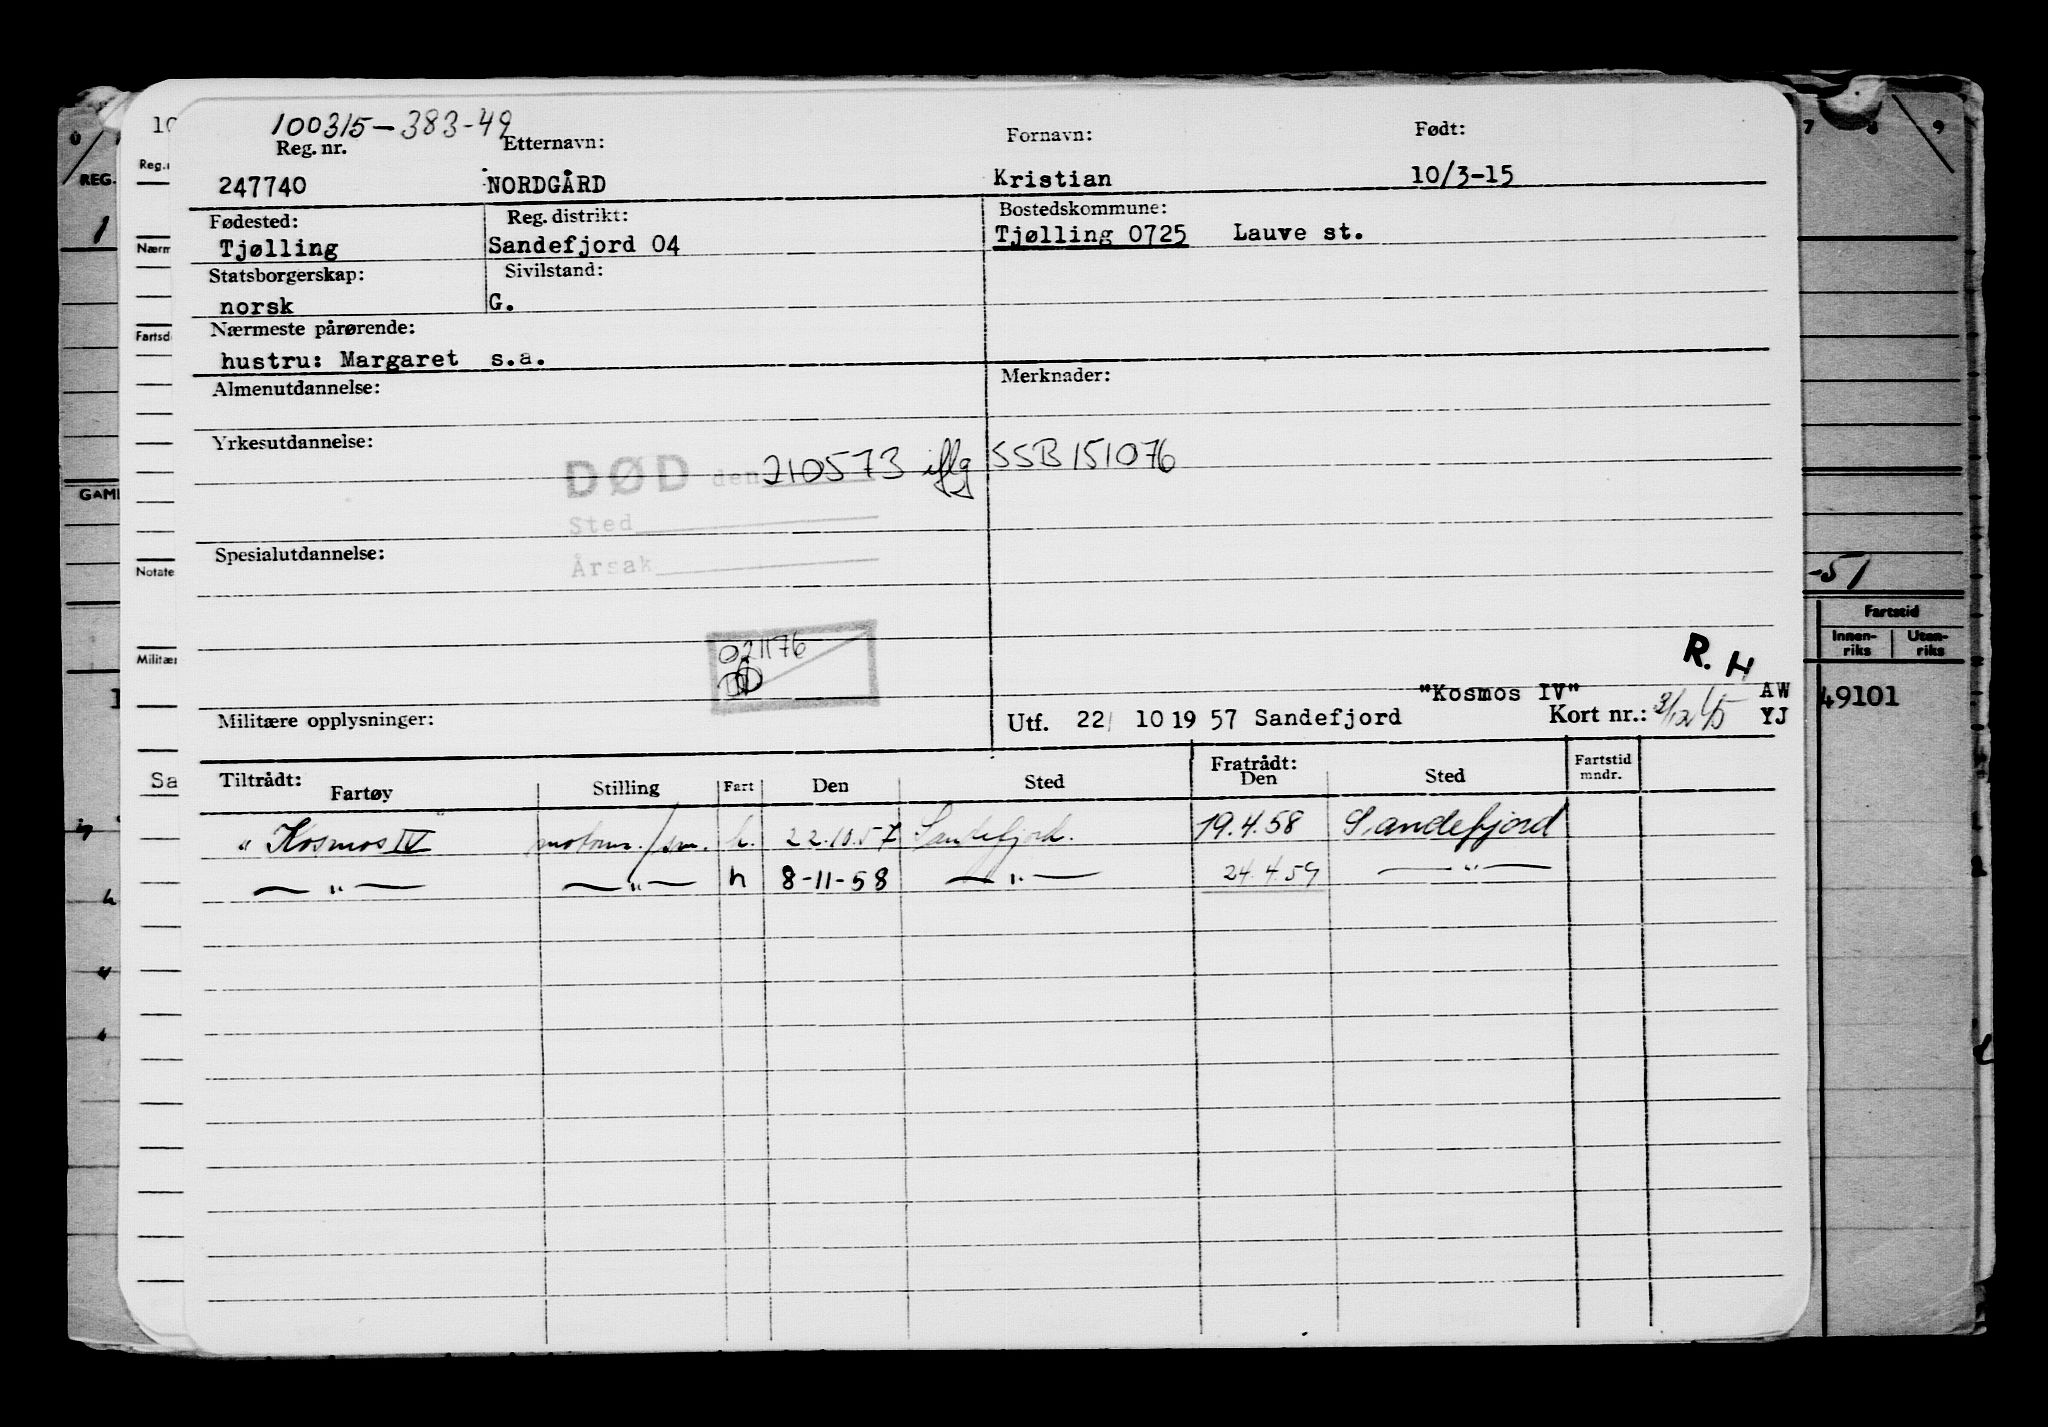 100315-383-49
Reg. nr. Etternavn: Fornavn: Født:
247740 NORDGÅRD Kristian 10/3-15
Fødested: Reg. distrikt: Bostedskommune:
Tjølling Sandefjord 04 Tjølling 0725 Lauve st.
Statsborgerskap: Sivilstand:
norsk G.
Nærmeste pårørende:
hustru: Margaret s.a.
Almenutdannelse: Merknader:
Yrkesutdannelse:
DØD den 210573 iflg SSB 151076
Sted
Årsak
Spesialutdannelse:
021176
R. H
"Kosmos IV" AW
Militære opplysninger: Utf. 22/ 10 19 57 Sandefjord Kort nr.: YJ
Tiltrådt: Fratrådt: Fartstid
Fartøy Stilling Fart Den Sted Den Sted mndr.
" Kosmos IV motorm./sm. h. 22.10.57 Sandefjord. 19.4.58 Sandefjord
— " — — " — h 8-11-58 — " — 24.4.59 — " —
10
Reg.
Nærm
Fartsd
Notate
Militær
Sa
0
REG.
1
GAML
7 8 9
-51
Fartstid
Innen-riks Uten-riks
49101